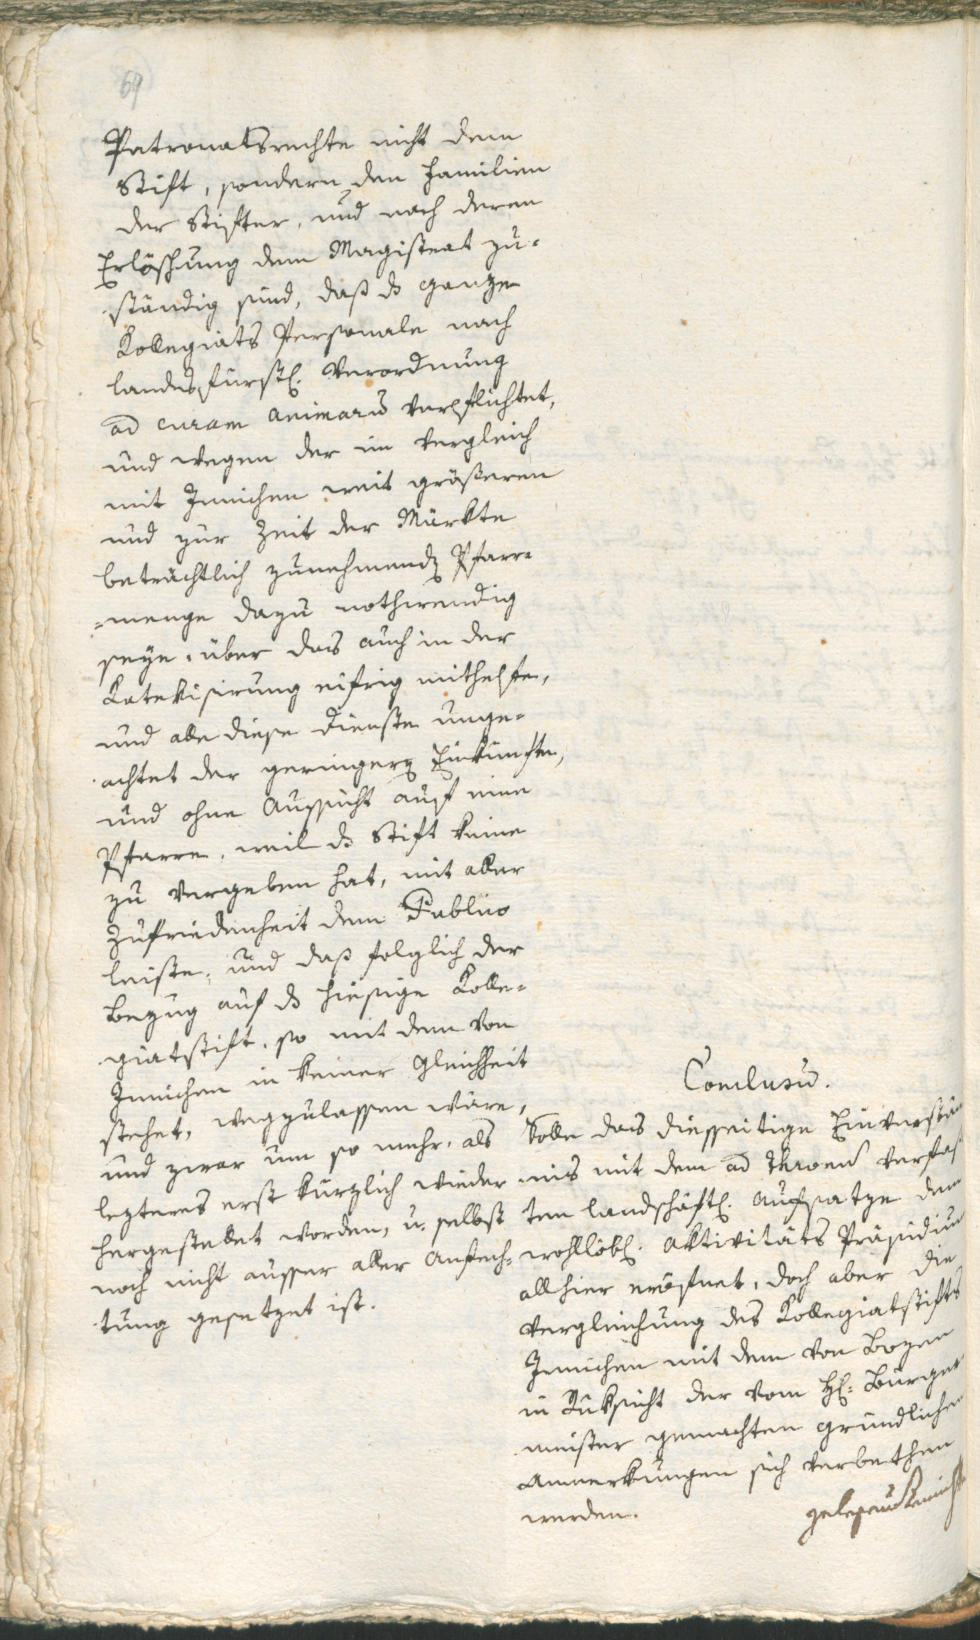 69
Patronatsrechte nicht dem
Stift, sondern den Familien
der Stifter, und nach deren
Erlöschung dem Magistrat zu-
ständig sind, daß ds ganze
Kollegiats Personale nach
landesfürstl. Verordnung
ad curam animarū verpflichtet,
und wegen der im Vergleich
mit Innichen weit größeren
und zur Zeit der Märkte
beträchtlich zunehmend Pfarr-
-menge dazu nothwendig
seye, über das auch in der
Katekisirung eifrig mithelfen,
und alle diese Dienste unge-
achtet der geringern Einkünften,
und ohne Aussicht auf eine
Pfarre, weil ds Stift keine
zu vergeben hat, mit aller
Zufriedenheit dem Publico
leiste, und daß folglich der
Bezug auf ds hiesige Kolle-
giatstift, so mit dem von
Innichen in keiner Gleichheit
stehet, wegzulassen wäre,
und zwar um so mehr, als
lezteres erst kürzlich wieder
hergestellet worden, u. selbst
noch nicht ausser aller Anfech-
tung gesetzet ist.
Conclusū.
Solle das diesseitige Einverständ
nis mit dem ad Thronū verfaß
ten landschäftl. Aufsatze dem
wohllöbl. Aktivitäts Präsidium
allhier eröfnet, doch aber die
Vergleichung des Kollegiatstifts
Innichen mit dem von Bozen
in Rüksicht der vom H: Bürger
meister gemachten gründlichen
Anmerkungen sich verbethen
werden.